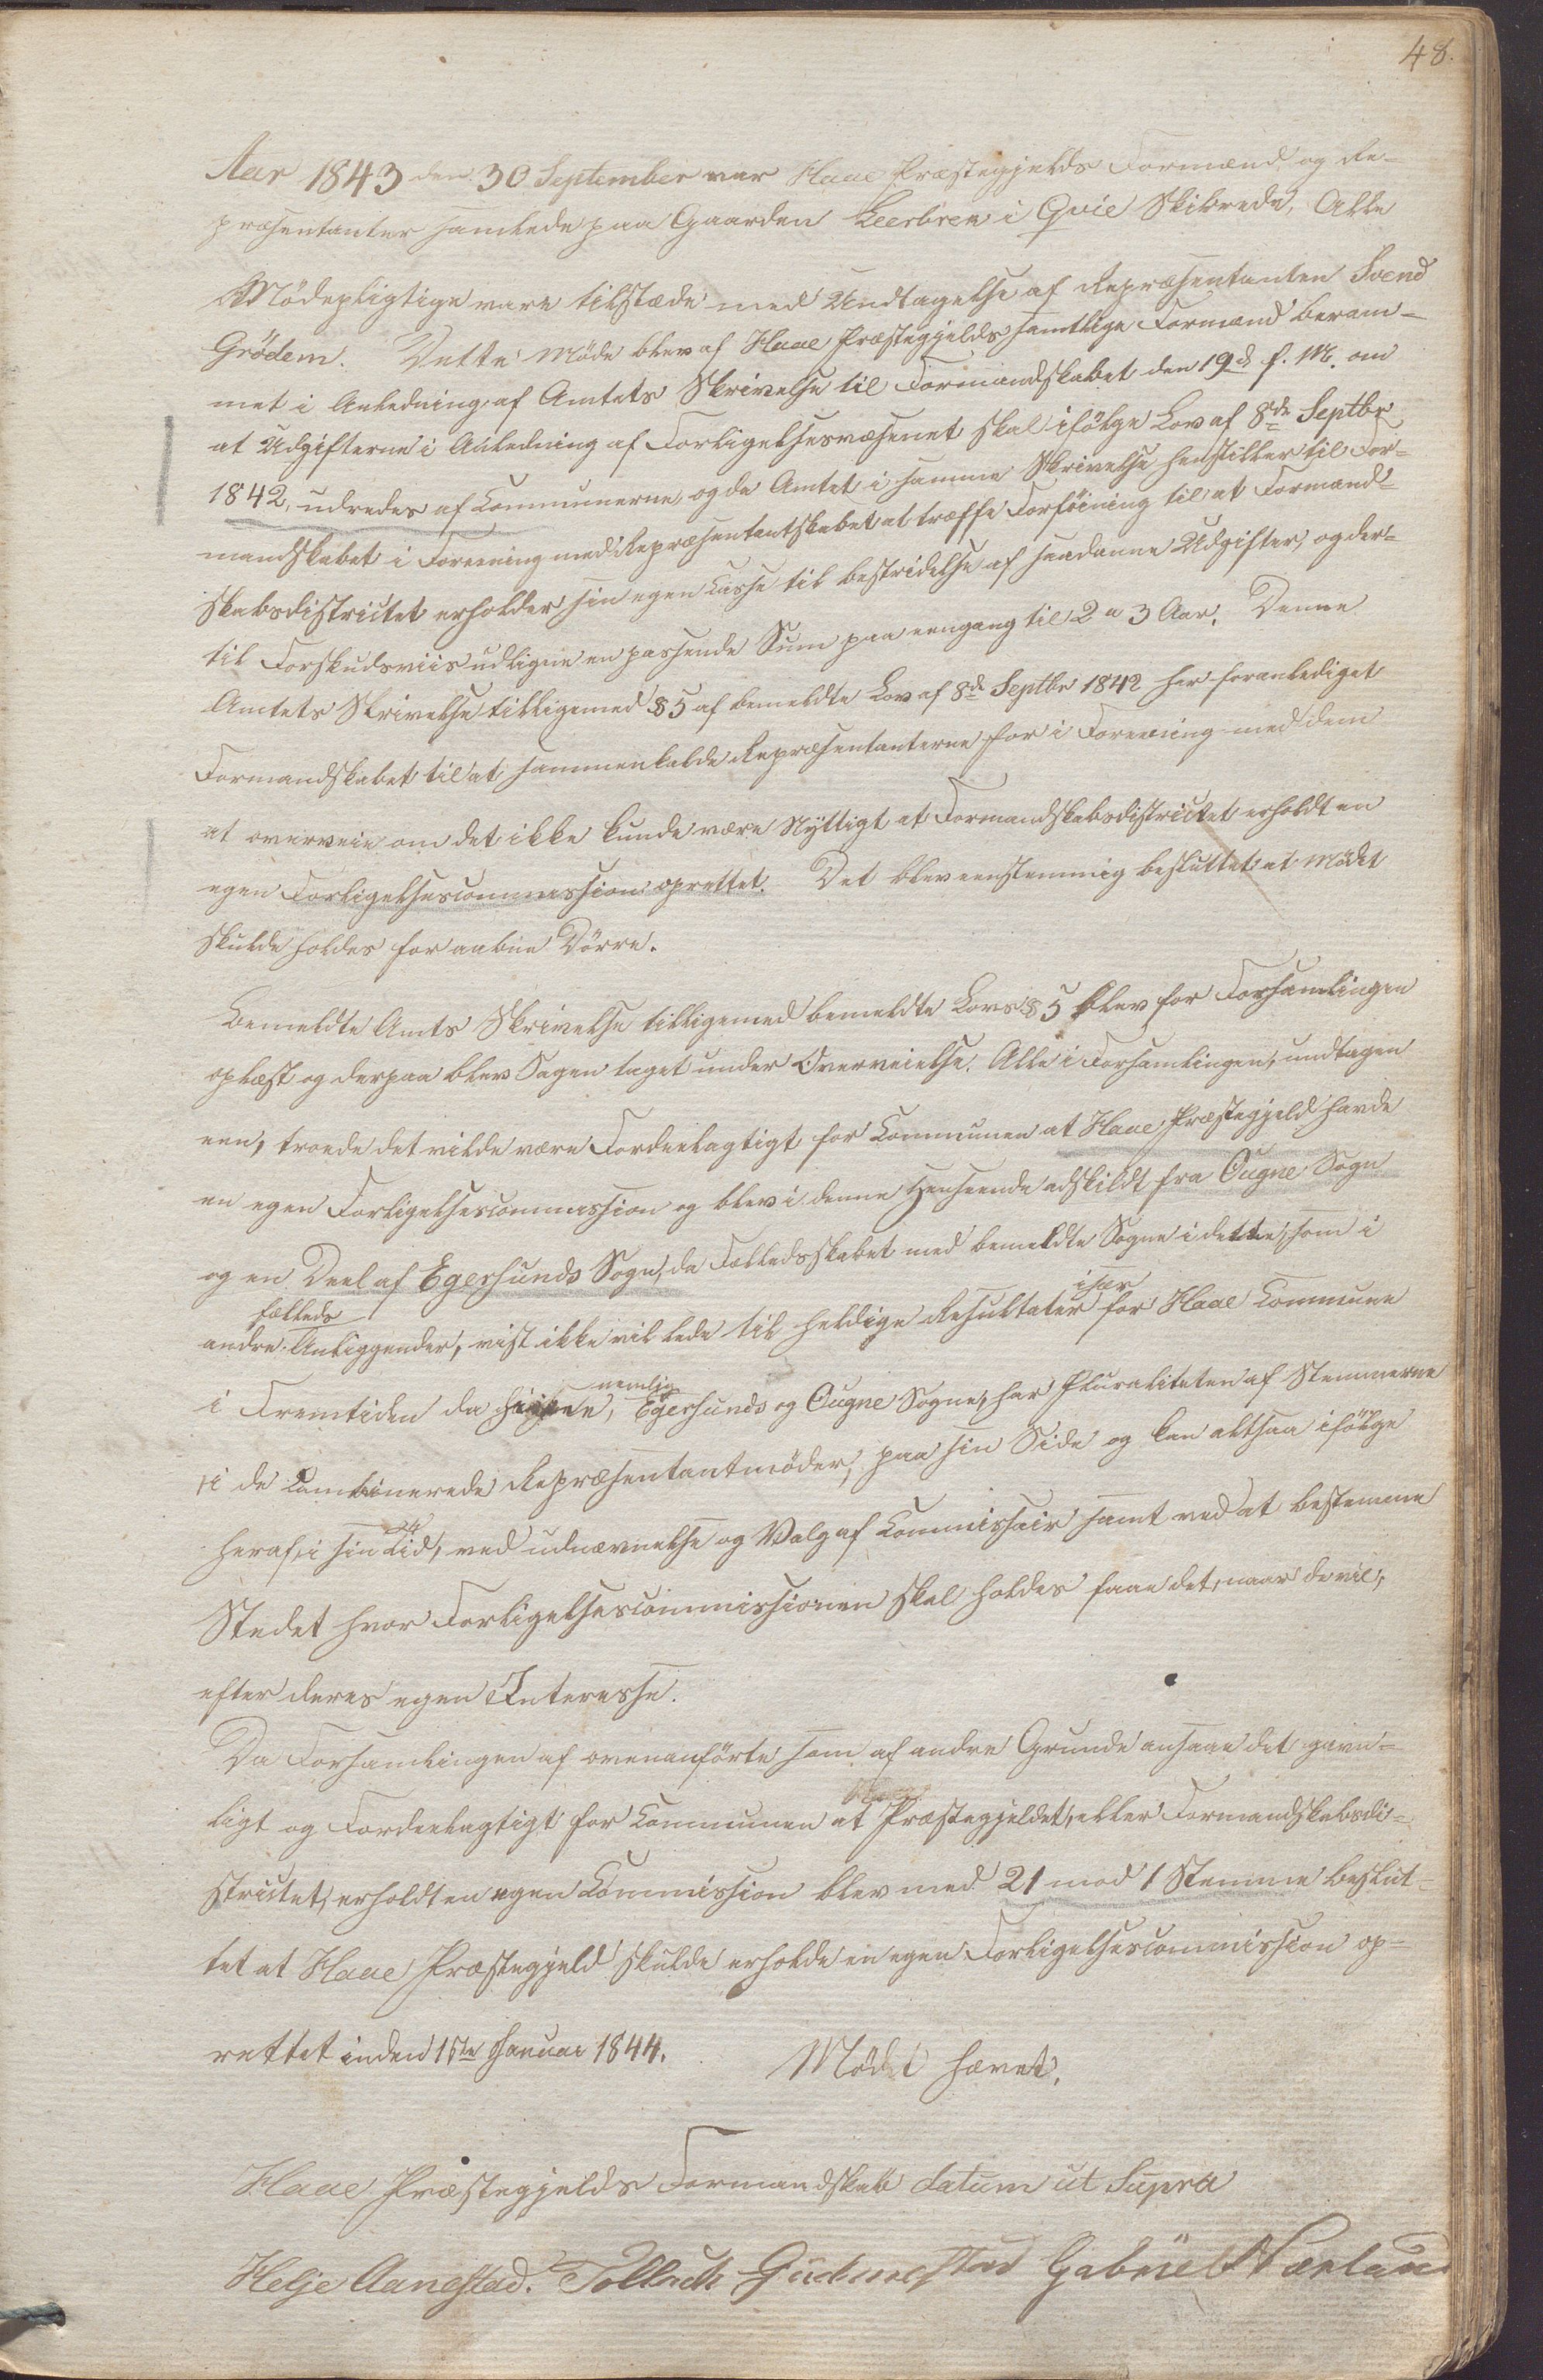 48.
Aar 1843 den 30 September var Haae Præstegjelds Formænd og Re-
præsentanter samlede paa Gaarden Leerbrek i Qvie Skibrede. Alle
Mødepligtige vare tilstæde med Undtagelse af Repræsentanten Svend
Grödem. Dette Møde blev af Haae Præstegjelds samtlige Formænd beram-
met i Anledning af Amtets Skrivelse til Formandskabet den 19de f. M. om
at Udgifterne i Anledning af Forligelsesvæsenet skal ifølge Lov af 8de Septbr
1842, udredes af Communerne, og da Amtet i samme Skrivelse henstiller til For-
mandskabet i Forening med Repræsentantskabet at træffe Forföining til at Formand-
skabsdistrictet erholder sin egen Casse til Bestridelse af saadanne Udgifter, og der-
til Forskudsviis udligne en passende Sum paa eengang til 2 a 3 Aar. Denne
Amtets Skrivelse tilligemed § 5 af bemeldte Lov af 8de Septbr 1842 har foranlediget
Formandskabet til at sammenkalde Repræsentanterne for i Forening med dem
at overveie om det ikke kunde være Nyttigt at Formandskabsdistrictet erholdt en
egen Forligelsescommission oprettet. Det blev eenstemmig besluttet at Mødet
skulde holdes for aabne Dörre.
Bemeldte Amts Skrivelse tilligemed bemeldte Lovs § 5 blev for Forsamlingen
oplæst og derpaa blev Sagen taget under Overveielse. Alle i Forsamlingen, undtagen
een, troede det vilde være Fordeelagtigt for Communen at Haae Præstegjeld havde
en egen Forligelsescommission og blev i denne Henseende adskildt fra Ougne Sogn
og en Deel af Egersunds Sogn, da Fælledsskabet med bemeldte Sogne i dette, som i
andre fælleds Anliggender, vist ikke vil lede til heldige Resultater især for Haae Commune
i Fremtiden da hine, nemlig Egersunds og Ougne Sogne, har Pluraliteten af Stemmerne
i de Combinerede Repræsentantmøder, paa sin Side og kan altsaa ifølge
heraf, i sin Tid, ved udnævnelse og Valg af Commissair samt ved at bestemme
Stedet hvor Forligelsescommissionen skal holdes faae det, naar de vil,
efter deres egen Interesse.
Da Forsamlingen af ovenanförte som af andre Grunde ansaae det gavn-
ligt og Fordeelagtigt for Communen at Præstegjeldet, eller Formandskabsdi-
strictet, erholdt en egen Commission blev med 21 mod 1 Stemme beslut-
tet at Haae Præstegjeld skulde erholde en egen Forligelsescommission op-
rettet inden 1ste Januar 1844. Mødet hævet.
Haae Præstegjelds Formandskab datum ut Supra
Helje Aanestad. Tollach Gudmestad Gabriel Nærland